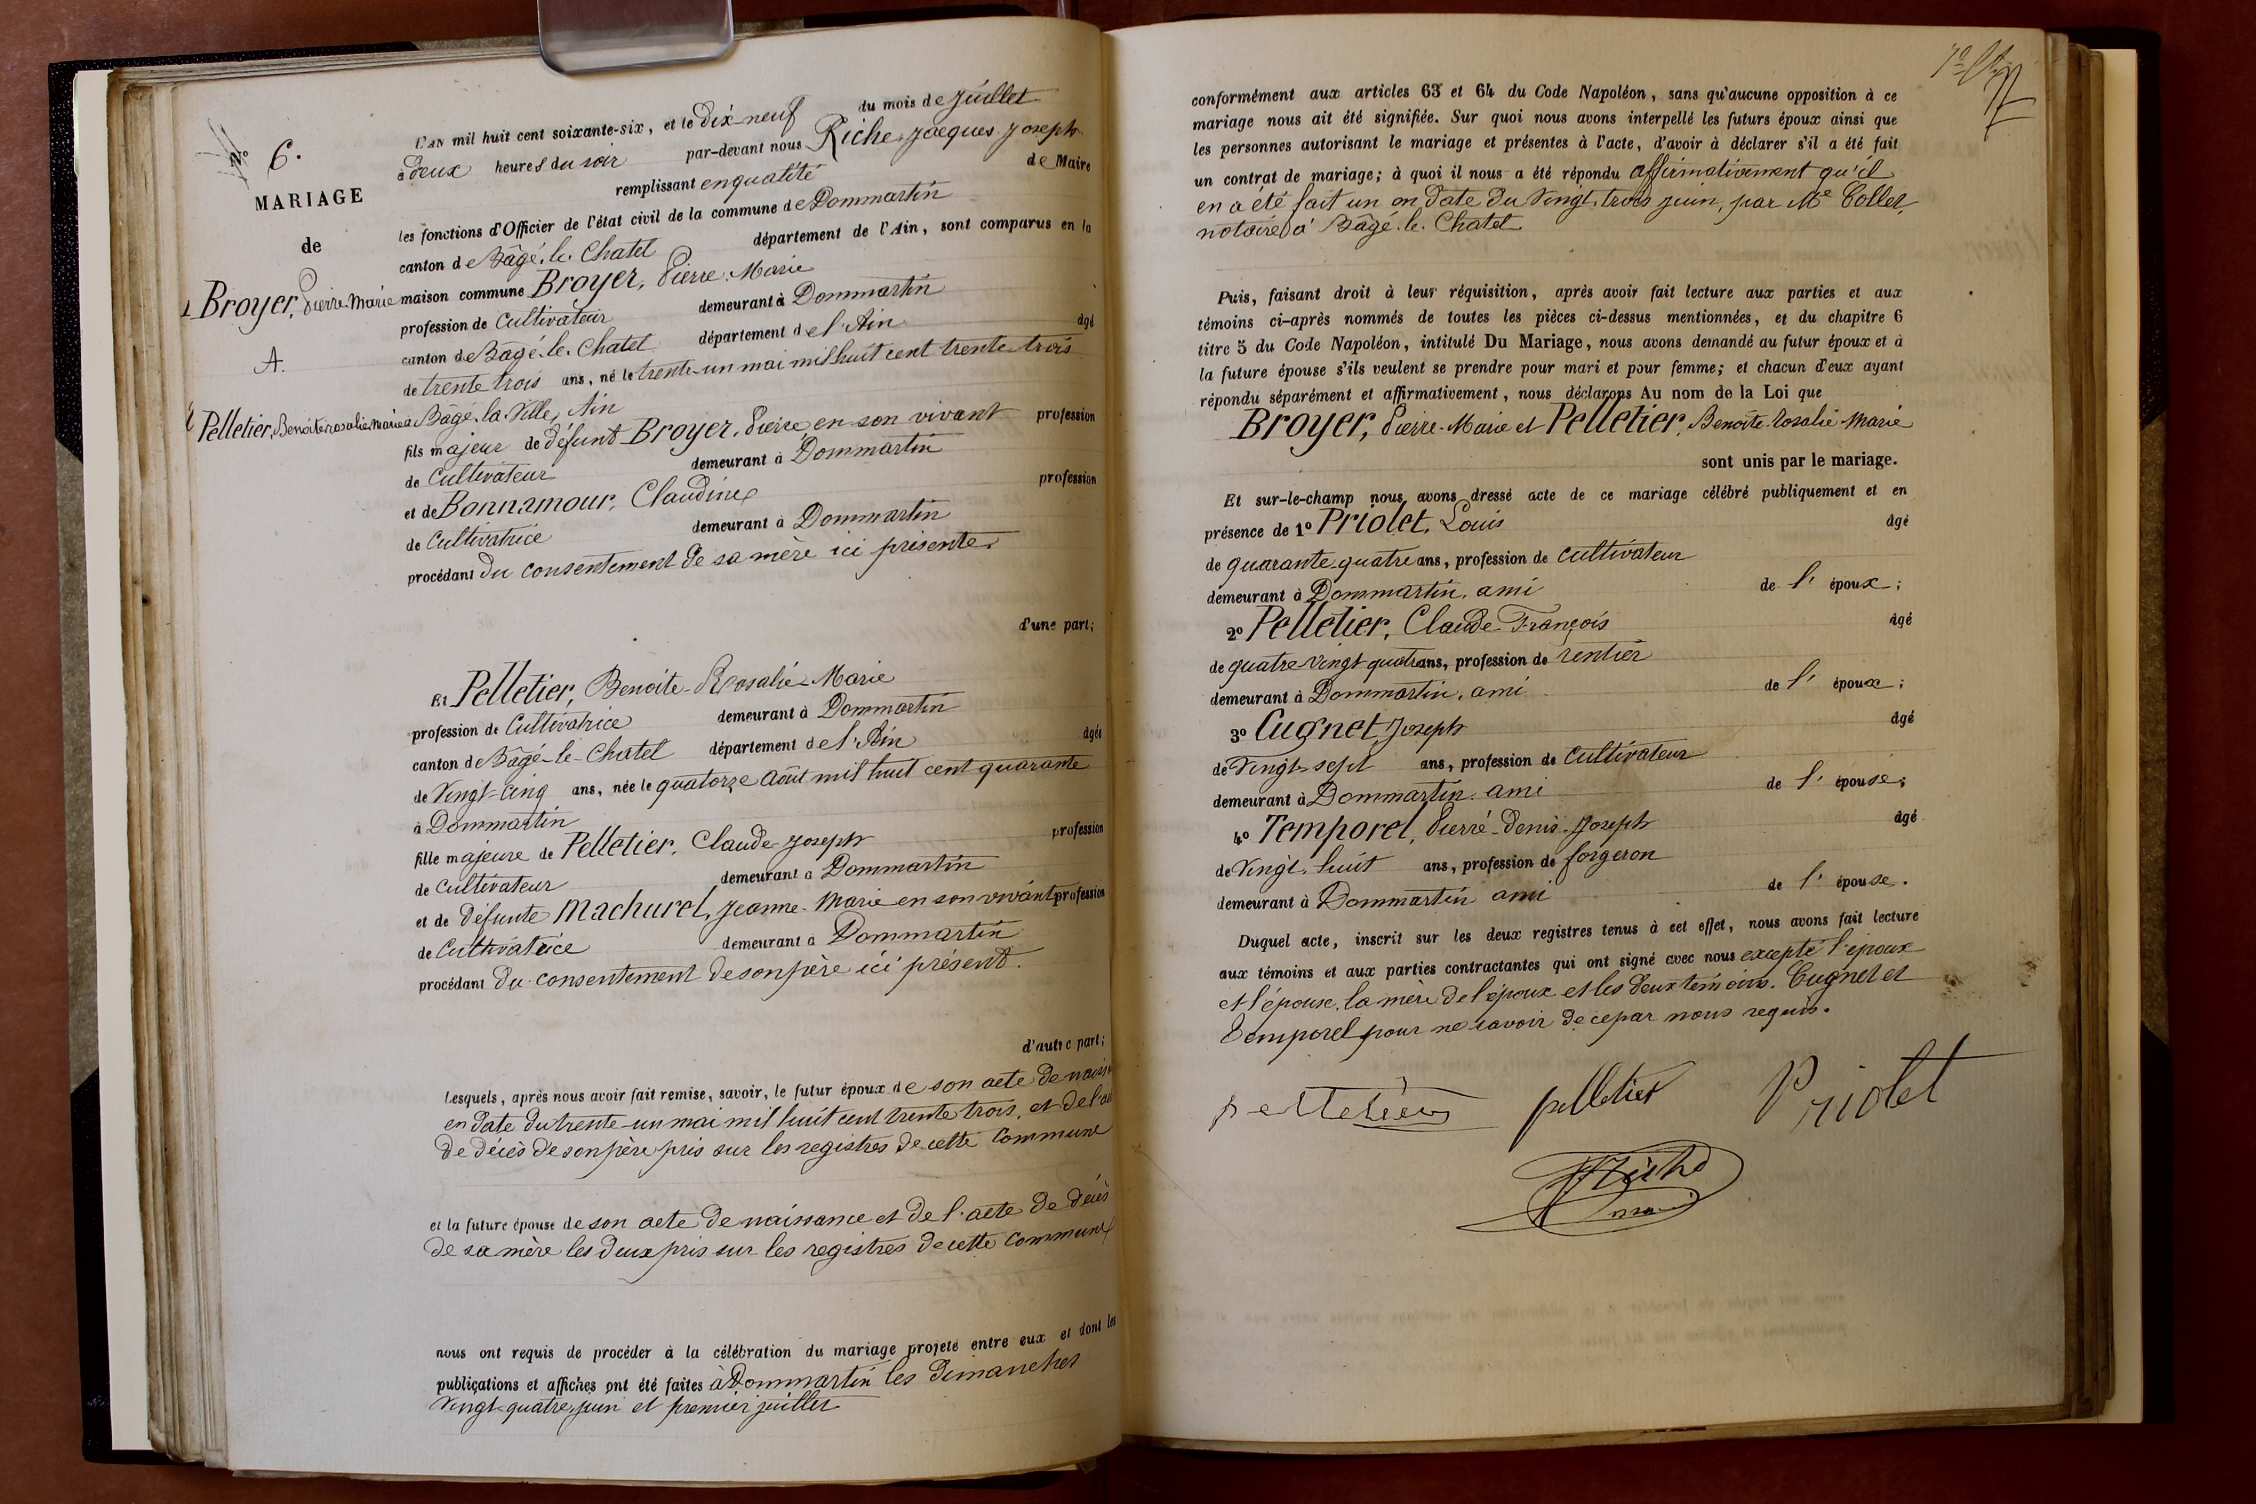 No 6.
MARIAGE
de
1 Broyer, Pierre-Marie
A.
Pelletier, Benoite rosalie Marie
L'an mil huit cent soixante-six, et le dix-neuf du mois de Juillet
à deux heures du soir par-devant nous Riche, Jacques Joseph
remplissant en qualité de Maire
les fonctions d'Officier de l'état civil de la commune de Dommartin
canton de Bâgé-le-Chatel département de l'Ain, sont comparus en la
maison commune Broyer, Pierre-Marie
profession de Cultivateur demeurant à Dommartin
canton de Bâgé-le-Chatel département de l'Ain âgé
de trente trois ans, né le trente-un mai mil huit cent trente trois
à Bâgé-la-Ville, Ain
fils majeur de défunt Broyer, Pierre en son vivant profession
de Cultivateur demeurant à Dommartin
et de Bonnamour, Claudine profession
de Cultivatrice demeurant à Dommartin
procédant du consentement de sa mère ici présente
d'une part;
Et Pelletier, Benoite-Rosalie-Marie
profession de Cultivatrice demeurant à Dommartin
canton de Bâgé-le-Chatel département de l'Ain âgée
de Vingt-Cinq ans, née le quatorze Août mil huit cent quarante
à Dommartin
fille majeure de Pelletier, Claude Joseph profession
de Cultivateur demeurant à Dommartin
et de défunte Machurel, Jeanne-Marie en son vivant profession
de Cultivatrice demeurant à Dommartin
procédant du consentement de son père ici présent.
d'autre part;
Lesquels, après nous avoir fait remise, savoir, le futur époux de son acte de
en date du trente-un mai mil huit cent trente trois, et de
de décès de son père pris sur les registres de cette Commune
et la future épouse de son acte de naissance et de l'acte de décès
de sa mère les deux pris sur les registres de cette Commune
nous ont requis de procéder à la célébration du mariage projeté entre eux et dont les
publications et affiches ont été faites à Dommartin les dimanches
Vingt-quatre juin et premier juillet
conformément aux articles 63 et 64 du Code Napoléon, sans qu'aucune opposition à ce
mariage nous ait été signifiée. Sur quoi nous avons interpellé les futurs époux ainsi que
les personnes autorisant le mariage et présentes à l'acte, d'avoir à déclarer s'il a été fait
un contrat de mariage; à quoi il nous a été répondu affirmativement qu'il
en a été fait un en date du Vingt trois juin, par Me Collet,
notaire à Bâgé-le-Chatel
Puis, faisant droit à leur réquisition, après avoir fait lecture aux parties et aux
témoins ci-après nommés de toutes les pièces ci-dessus mentionnées, et du chapitre 6
titre 5 du Code Napoléon, intitulé Du Mariage, nous avons demandé au futur époux et à
la future épouse s'ils veulent se prendre pour mari et pour femme; et chacun d'eux ayant
répondu séparément et affirmativement, nous déclarons Au nom de la Loi que
Broyer, Pierre-Marie et Pelletier, Benoite-rosalie-Marie
sont unis par le mariage.
Et sur-le-champ nous avons dressé acte de ce mariage célébré publiquement et en
présence de 1o Priolet, Louis âgé
de quarante quatre ans, profession de cultivateur
demeurant à Dommartin, ami de l'époux;
2o Pelletier, Claude François âgé
de quatre Vingt quatre ans, profession de rentier
demeurant à Dommartin, ami de l'époux;
3o Cugnet, Joseph âgé
de Vingt-sept ans, profession de Cultivateur
demeurant à Dommartin, ami de l'épouse;
4o Temporel, Pierre-Denis-Joseph âgé
de Vingt-huit ans, profession de forgeron
demeurant à Dommartin ami de l'épouse.
Duquel acte, inscrit sur les deux registres tenus à cet effet, nous avons fait lecture
aux témoins et aux parties contractantes qui ont signé avec nous excepté l'époux
et l'épouse, la mère de l'époux et les deux témoins. Cugnet et
Temporel pour ne savoir de ce par nous requis.
pelletier pelletier Priolet
Riche